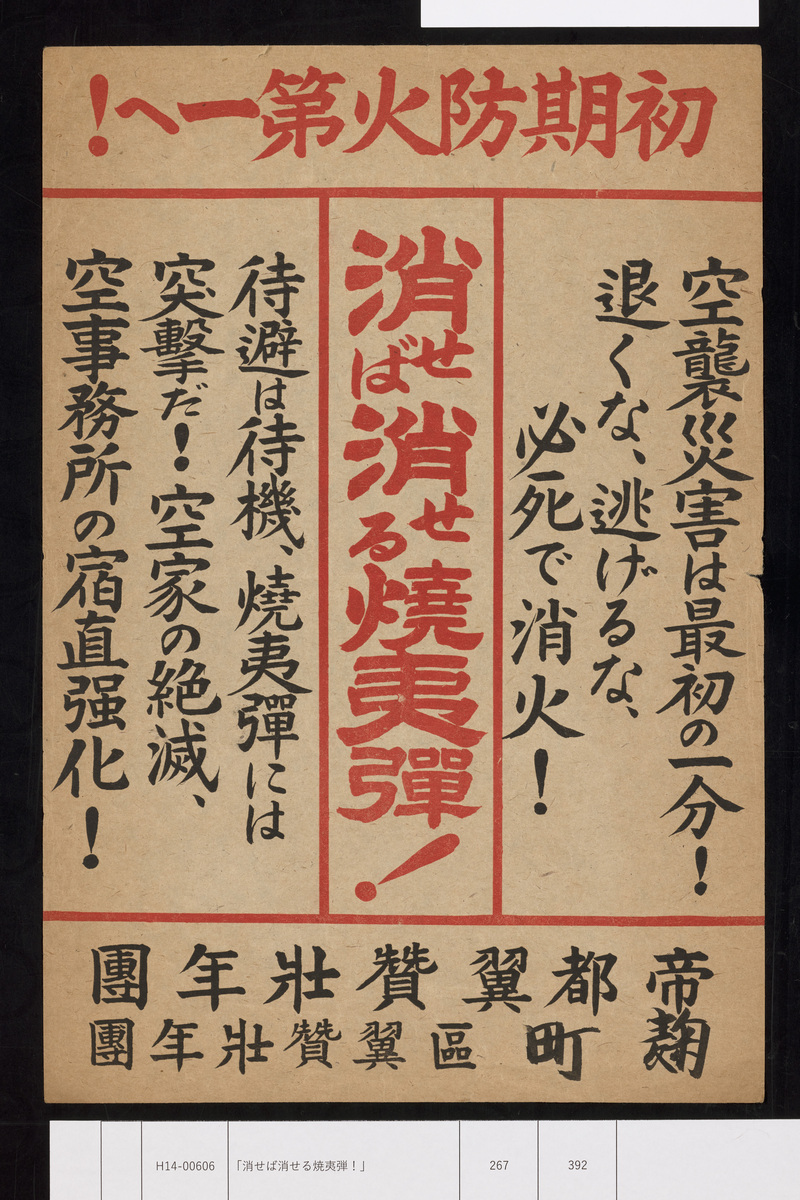 初期防火第一へ！
空襲災害は最初の一分！
退くな、逃げるな、
必死で消火！
消せば消せる燒夷彈！
待避は待機、燒夷彈には
突擊だ！空家の絶滅、
空事務所の宿直强化！
帝都翼贊壯年團
麴町區翼贊壯年團
H14-00606 「消せば消せる焼夷弾！」 267 392